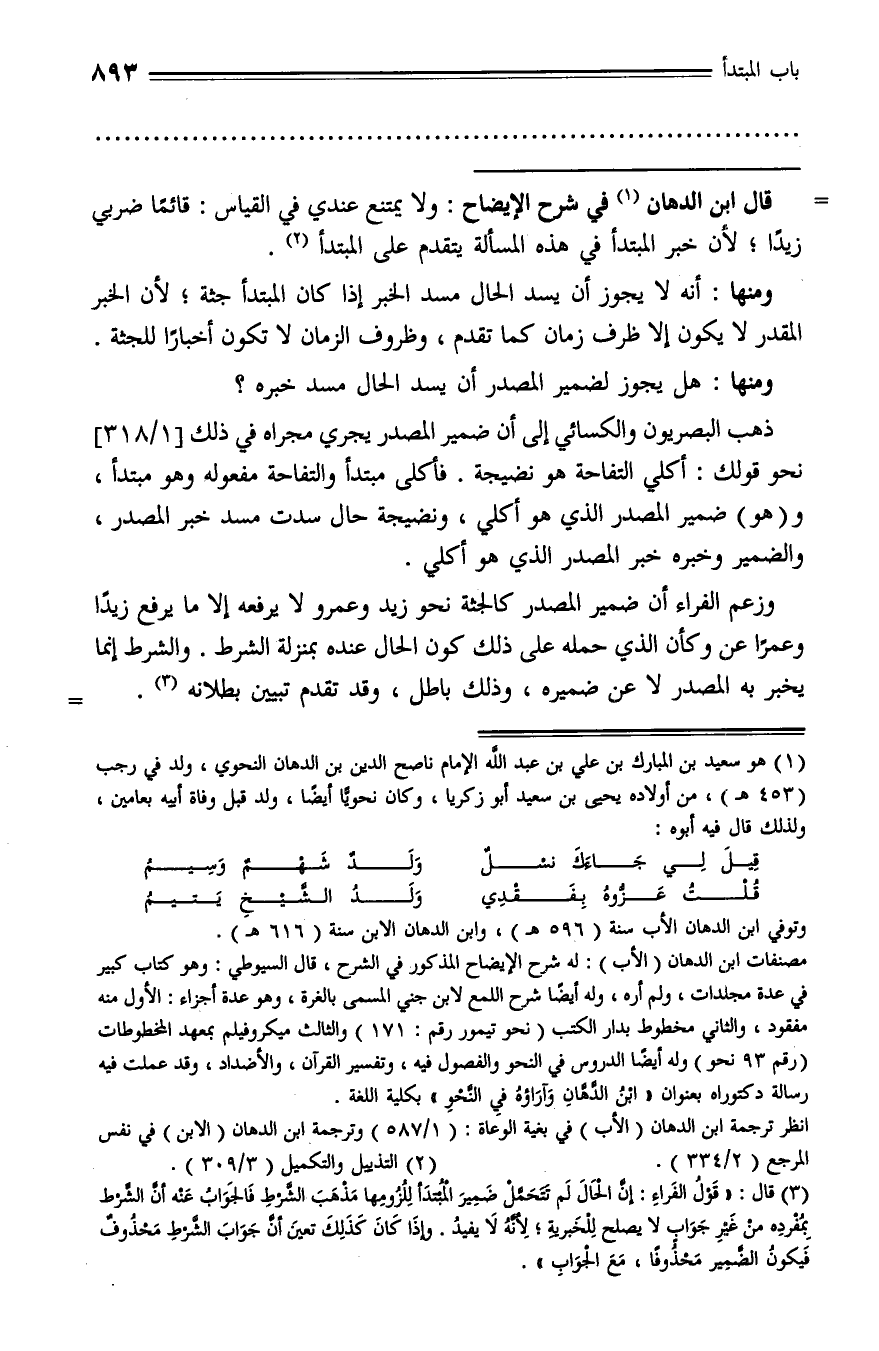 باب المبتدأ ٨٩٣
................................................................................
= قال ابن الدهان (١) في شرح الإيضاح : ولا يمتنع عندي في القياس : قائمًا ضربي
زيدًا ؛ لأن خبر المبتدأ في هذه المسألة يتقدم على المبتدأ (٢) .
ومنها : أنه لا يجوز أن يسد الحال مسد الخبر إذا كان المبتدأ جثة ؛ لأن الخبر
المقدر لا يكون إلا ظرف زمان كما تقدم ، وظروف الزمان لا تكون أخبارًا للجثة .
ومنها : هل يجوز لضمير المصدر أن يسد الحال مسد خبره ؟
ذهب البصريون والكسائي إلى أن ضمير المصدر يجري مجراه في ذلك [٣١٨/١]
نحو قولك : أكلي التفاحة هو نضيجة . فأكلى مبتدأ والتفاحة مفعوله وهو مبتدأ ،
و ( هو ) ضمير المصدر الذي هو أكلي ، ونضيجة حال سدت مسد خبر المصدر ،
والضمير وخبره خبر المصدر الذي هو أكلي .
وزعم الفراء أن ضمير المصدر كالجثة نحو زيد وعمرو لا يرفعه إلا ما يرفع زيدًا
وعمرًا عن وكأن الذي حمله على ذلك كون الحال عنده بمنزلة الشرط . والشرط إنما
يخبر به المصدر لا عن ضميره ، وذلك باطل ، وقد تقدم تبيين بطلانه (٣) . =
(١) هو سعيد بن المبارك بن علي بن عبد اللَّه الإمام ناصح الدين بن الدهان النحوي ، ولد في رجب
(٤٥٣ هـ ) ، من أولاده يحيى بن سعيد أبو زكريا ، وكان نحويًّا أيضًا ، ولد قبل وفاة أبيه بعامين ،
ولذلك قال فيه أبوه :
قِيـلَ لِـي جَـاءَكَ نسْـلٌ وَلَـدٌ شَـهْـمٌ وَسِـيـمُ
قُـلْـتُ عَـزُّوهُ بِـفَـقْـدِي وَلَـدُ الـشَّيْـخِ يَـتـيـمُ
وتوفي ابن الدهان الأب سنة ( ٥٩٦ هـ ) ، وابن الدهان الابن سنة ( ٦١٦ هـ ) .
مصنفات ابن الدهان ( الأب ) : له شرح الإيضاح المذكور في الشرح ، قال السيوطي : وهو كتاب كبير
في عدة مجلدات ، ولم أره ، وله أيضًا شرح اللمع لابن جني المسمى بالغرة ، وهو عدة أجزاء : الأول منه
مفقود ، والثاني مخطوط بدار الكتب ( نحو تيمور رقم : ١٧١ ) والثالث ميكروفيلم بمعهد المخطوطات
(رقم ٩٣ نحو ) وله أيضًا الدروس في النحو والفصول فيه ، وتفسير القرآن ، والأضداد ، وقد عملت فيه
رسالة دكتوراه بعنوان « ابْنُ الدَّهَّانِ وَآرَاؤهُ فِي النَّحْوِ » بكلية اللغة .
انظر ترجمة ابن الدهان ( الأب ) في بغية الوعاة : ( ٥٨٧/١ ) وترجمة ابن الدهان ( الابن ) في نفس
المرجع ( ٣٣٤/٢ ) . (٢) التذييل والتكميل ( ٣٠٩/٣ ) .
(٣) قال : « قَوْلُ الفَراءِ : إنَّ الْحَالَ لَم تَتَحَمَّلْ ضَمِيرَ الْمُبْتَدَأ لِلُزُومِها مَذْهَبَ الشَّرْطِ فَالجَوَابُ عَنْه أنَّ الشَّرْط
بِمُفْرَدِه منْ غَيْرِ جَوَابٍ لا يصلح لِلْخَبرية ؛ لِأنَّهُ لَا يفيدُ . وإذَا كَانَ كَذَلِكَ تعينَ أنَّ جَوَابَ الشَّرْطِ مَحْذُوفٌ
فَيكونُ الضَّمِير مَحْذُوفًا ، مَعَ الْجَوَابِ » .